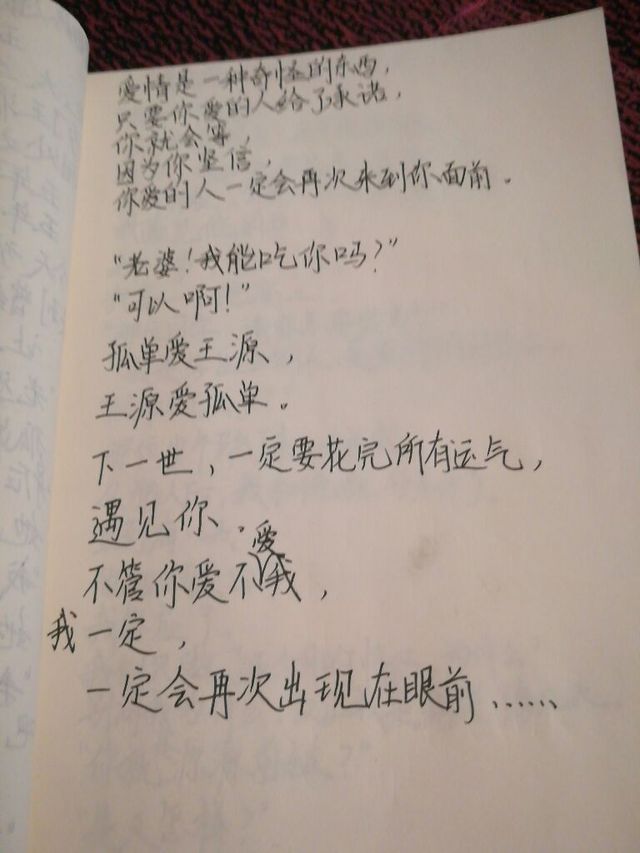 爱情是一种奇怪的东西，
只要你爱的人给了承诺，
你就会等，
因为你坚信，
你爱的人一定会再次来到你面前。
“老婆！我能吃你吗？”
“可以啊！”
孤单爱王源，
王源爱孤单。
下一世，一定要花完所有运气，
遇见你。
不管你爱不爱我，
我一定，
一定会再次出现在眼前……